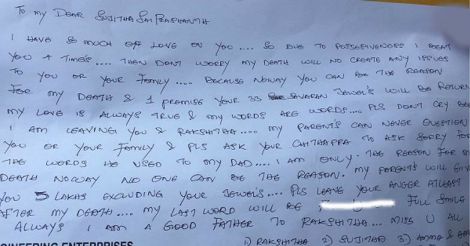 To my DEAR SUJITHA SAI PRASHANTH
I HAVE SO MUCH OF LOVE ON YOU.... SO DUE TO POSSESIVENESS I BEAT
YOU 4 TIMES.... THEN DONT WORRY MY DEATH WILL NO CREATE ANY ISSUES
TO YOU OR YOUR FAMILY.... BECAUSE NOWAY YOU CAN BE THE REASON
FOR MY DEATH & I PROMISE YOUR 33 SAVARAN JEWEL'S WILL BE RETURN
MY LOVE IS ALWAYS TRUE & MY WORDS ARE WORDS.... PLS DONT CRY
I AM LEAVING YOU & RAKSHITHA.... MY PARENTS CAN NEVER QUESTION
YOU OR YOUR FAMILY & PLS ASK YOUR CHITHAPPA TO ASK SORRY FOR
THE WORDS HE USED TO MY DAD.... I AM ONLY THE REASON FOR
DEATH NOWAY NO ONE CAN BE THE REASON. MY PARENTS WILL GIVE
YOU 5 LAKHS EXCLUDING YOUR JEWEL'S.... PLS LEAVE YOUR ANGER ATLEAST
AFTER MY DEATH.... MY LAST WORD WILL BE FULL SMILE
ALWAYS I AM A GOOD FATHER TO RAKSHITHA... MISS U ALL
1) RAKSHITHA 2) SUJITHA 3) AMMA &
ENTERPRISES